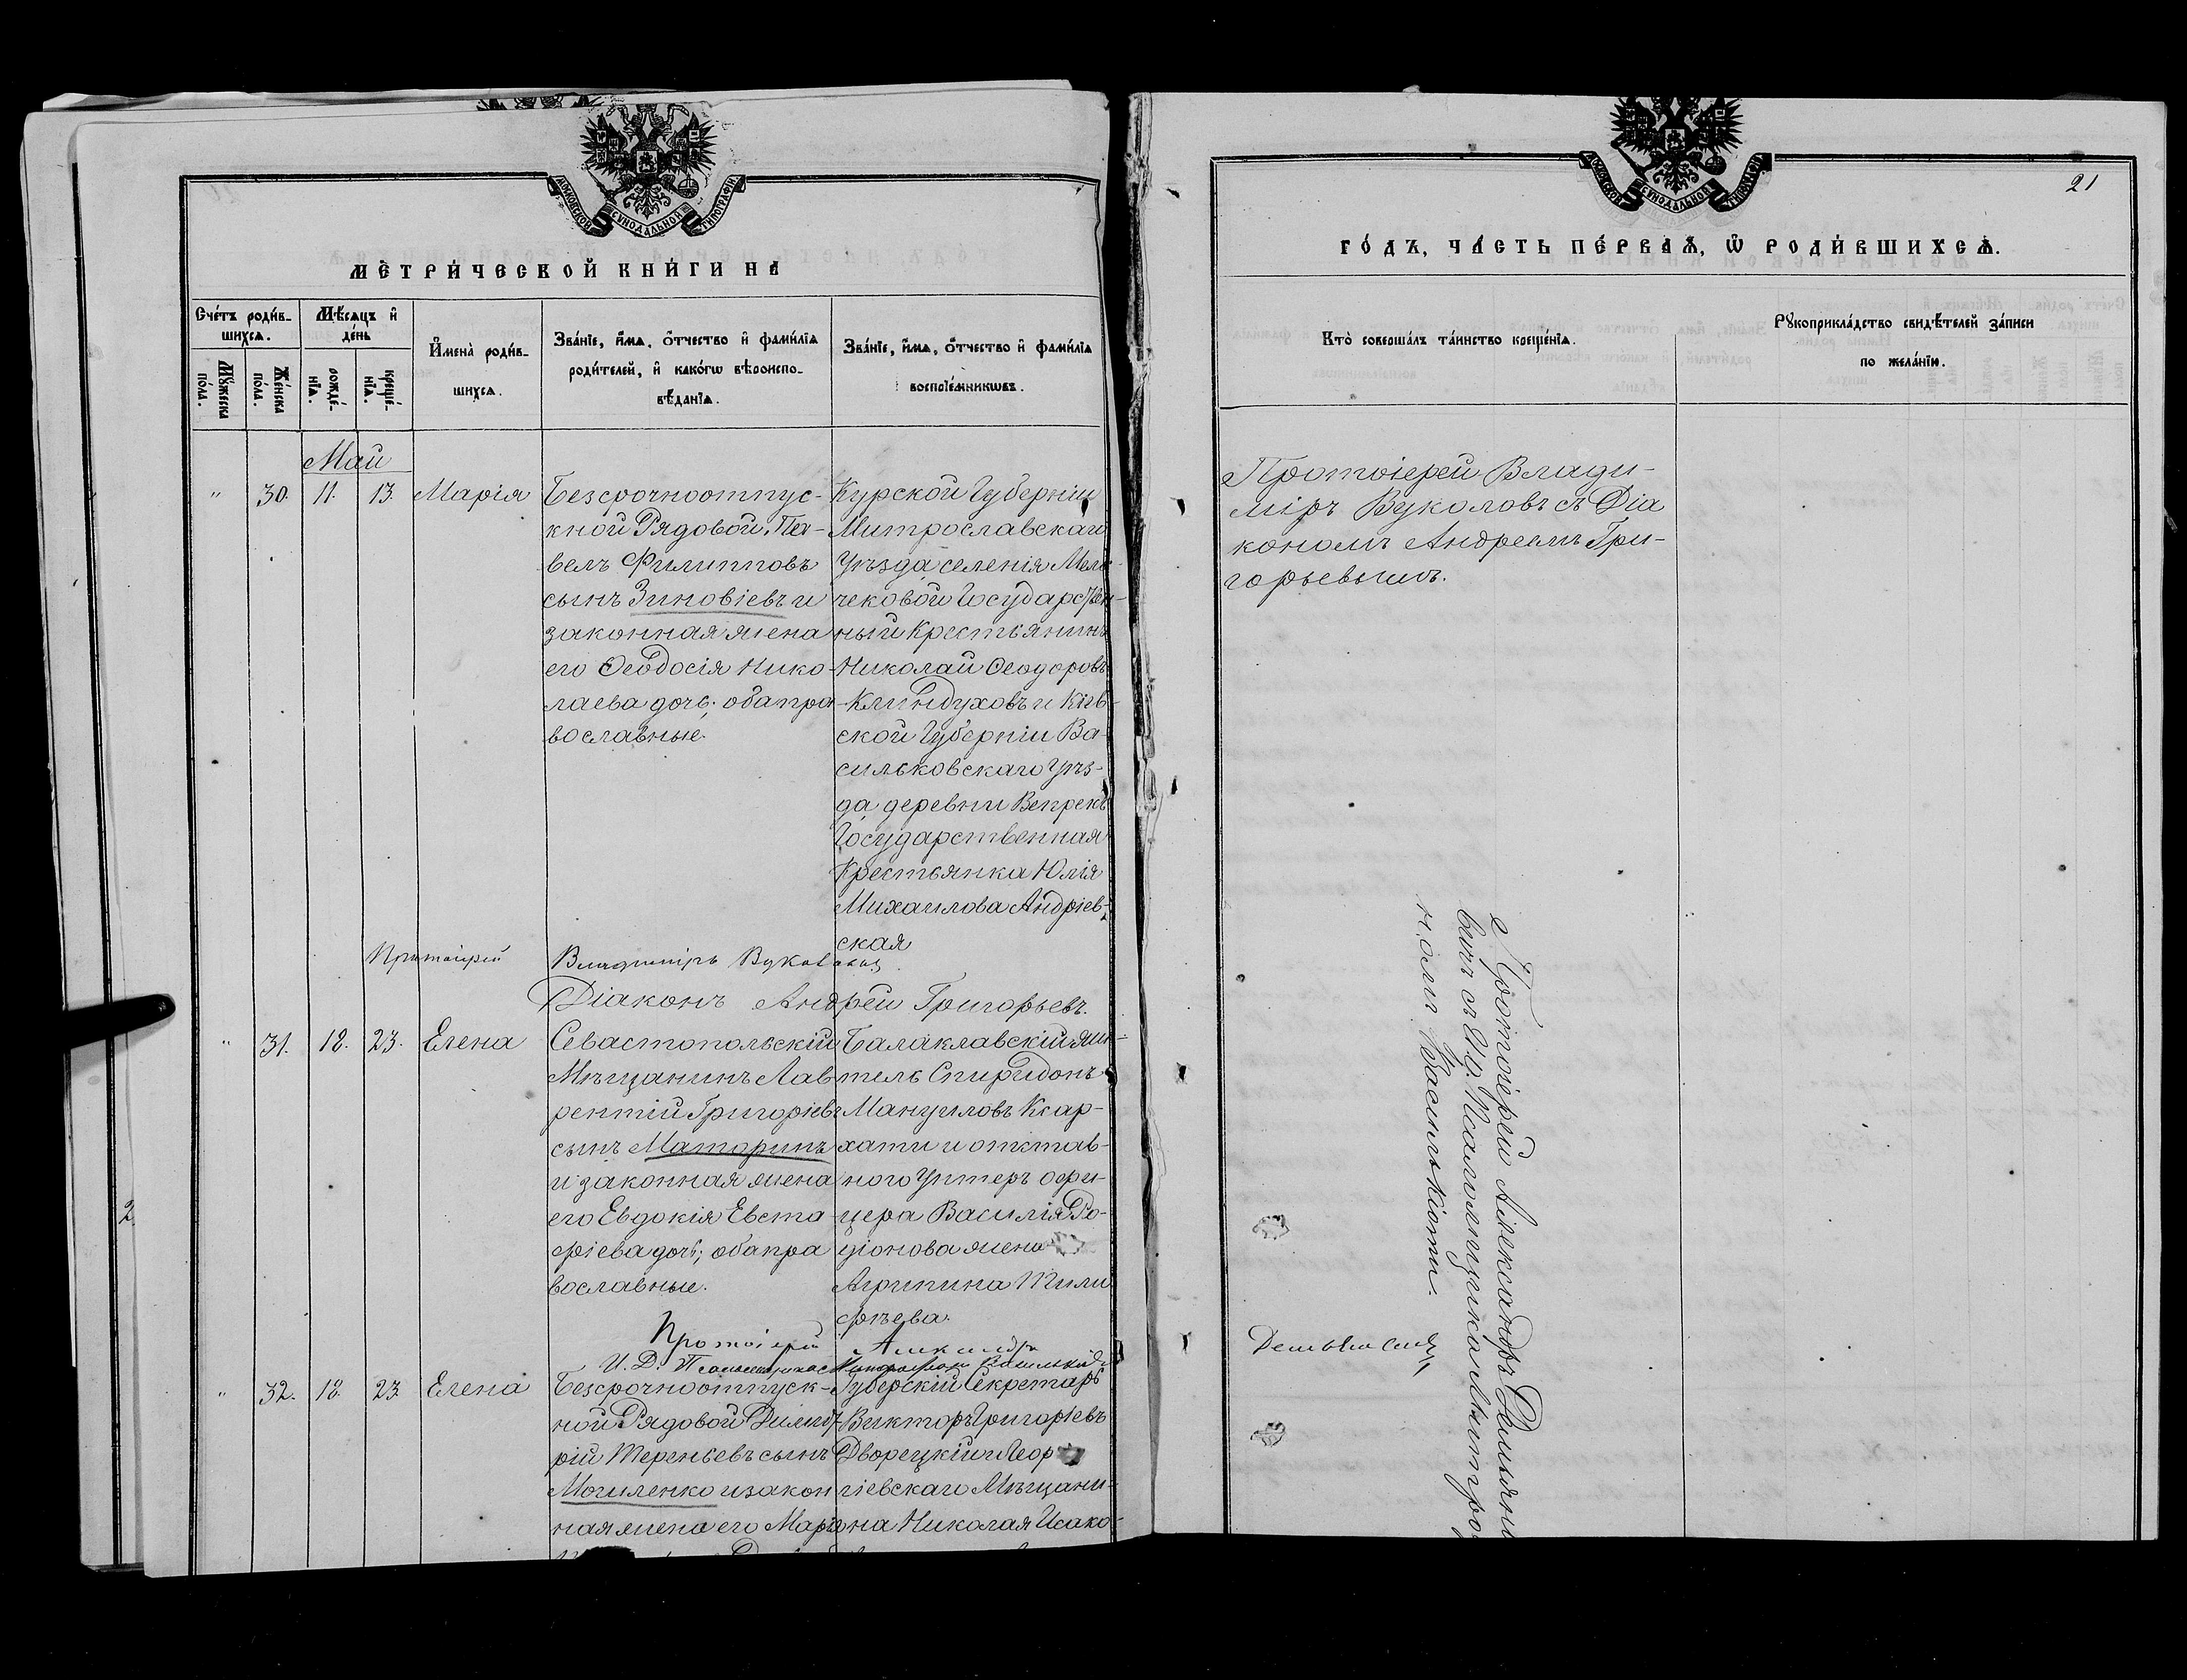 МОСКОВСКОЙ СѴНОДАЛЬНОЙ ТИПОГРАФІИ
МЕТРИ́ЧЕСКОЙ КНИ́ГИ НА
Сче́тъ роди́в-
шихсѧ.
Мꙋ́жеска
пола.
Же́нска
по́ла.
Мѣ́сяцъ и҆
де́нь
рожде́-
нїѧ.
креще́-
нїѧ.
И҆мена̀ роди́в-
шихсѧ.
Зва́нїе, и҆́мѧ, ѻ҆́тчество и҆ фами́лїѧ
роди́телей, и҆ како́гѡ вѣроиспо-
вѣ́данїѧ.
Зва́нїе, и҆́мѧ, ѻ҆́тчество и҆ фами́лїѧ
воспрїе́мникѡвъ.
Май
" 30. 11. 13. Марія
Безсрочноотпус-
кной Рядовой, Па-
велъ Филипповъ
сынъ Зиновіевъ и
законная жена
его Ѳеодосія Нико-
лаева дочь; оба пра
вославные.
Курской Губерніи
Митрославскаго
Уѣзда селенія
чековой Государствен-
ный Крестьянинъ
Николай Ѳеодоровъ
Клиндуховъ и Кіев-
ской Губерніи Ва-
сильковскаго Уѣз-
да деревни Веприкъ
Государственная
Крестьянка Юлія
Михаилова Андріев-
ская
Протоіерей Владиміръ Вуколовъ
Діаконъ Андрей Григорьевъ.
" 31. 18. 23. Елена
Севастопольскій
Мѣщанинъ Лав
рентій Григоріевъ
сынъ Маторинъ
и законная жена
его Евдокія Евста-
фіева дочь; оба пра
вославные.
Балаклавскій жи-
тель Спиридонъ
Мануиловъ Ксар-
хати и отстав-
ного Унтеръ офи-
цера Василія Ро-
діонова жена
Агрипина Тимо
фѣева.
Протоіерей Александръ
И. Д. Псаломщика
" 32. 18. 23. Елена
Безсрочноотпуск-
ной Рядовой Димит
рій Терентьевъ сынъ
Могиленко и закон
ная жена его Марія
Губерскій Секретарь
Викторъ Григорьевъ
Дворецкій и Геор
гіевскаго Мѣщани-
на Николая Исако-
2
МОСКОВСКОЙ СѴНОДАЛЬНОЙ ТИПОГРАФІИ
21
ГО́ДЪ, ЧА́СТЬ ПЕ́РВАѦ, Ѡ҆ РОДИ́ВШИХСѦ.
Кто̀ соверша́лъ та́инство креще́нїѧ.
Рꙋкоприкла́дство свидѣ́телей за́писи
по жела́нїю.
Протоіерей Влади-
міръ Вуколовъ съ Діа
кономъ Андреемъ Гри-
горьевымъ.
Протоіерей Александръ Демьяно
вичъ с И. Д. Псаломщика Митро
Васильковъ